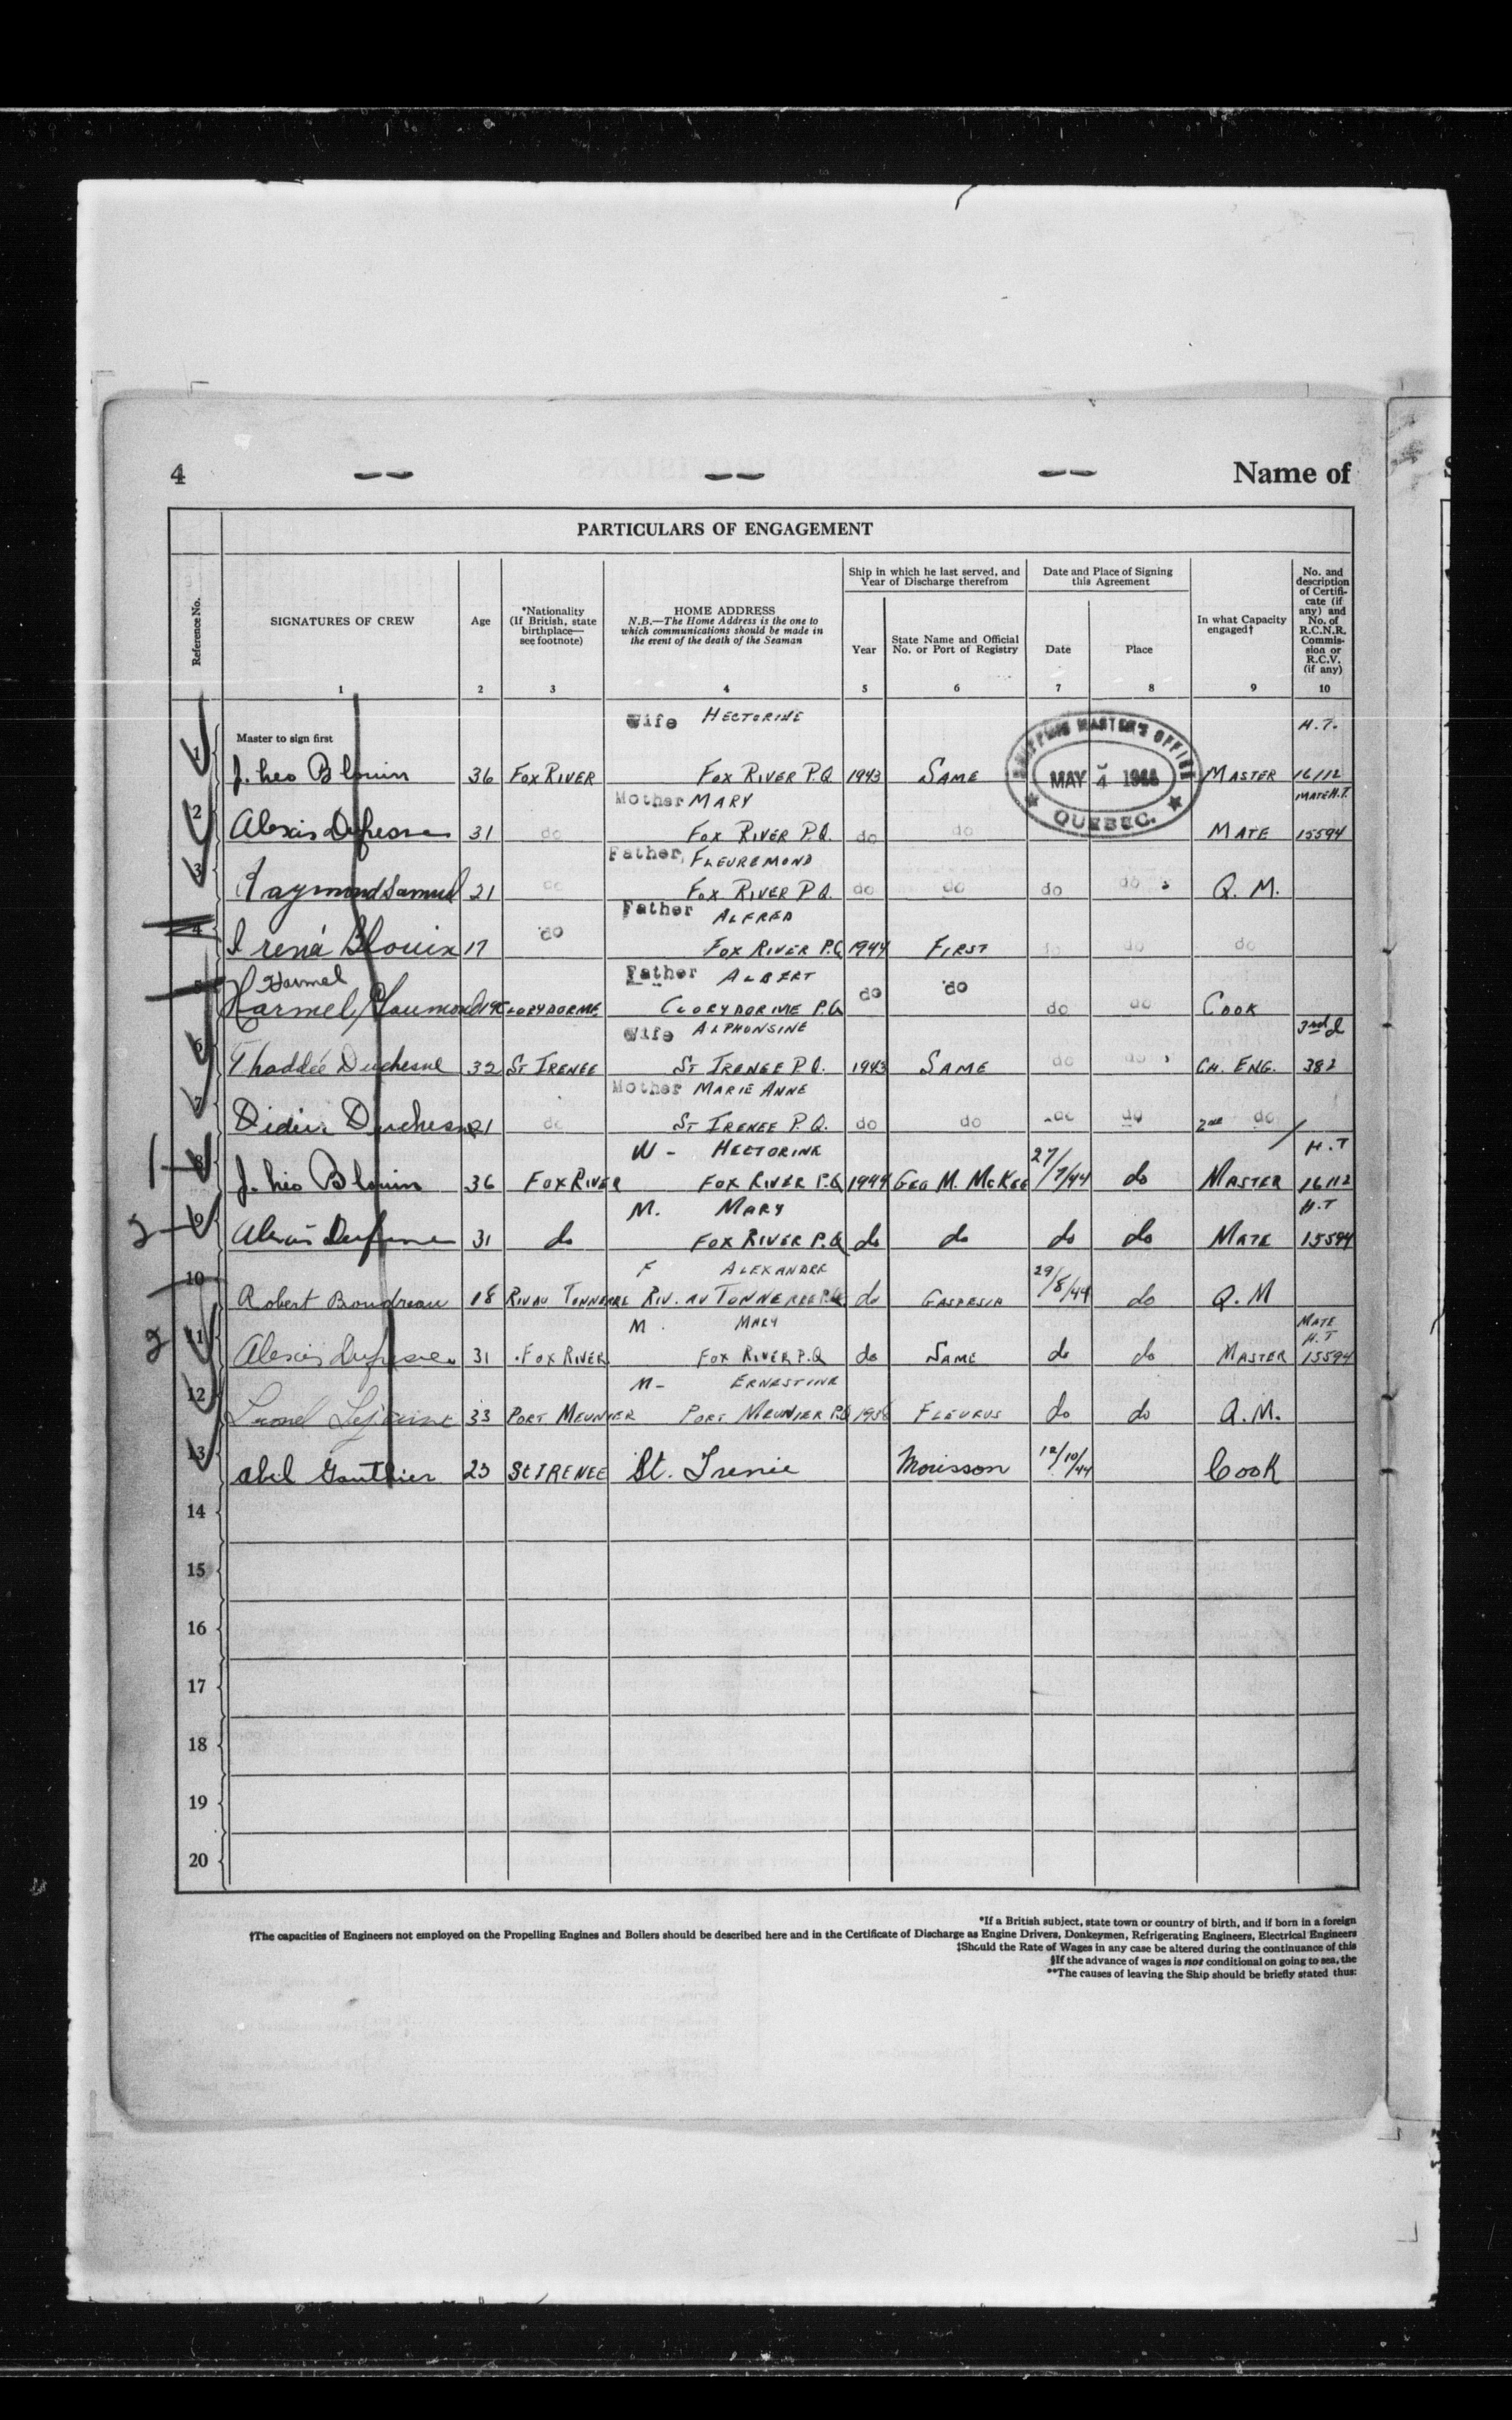 4 Name of
PARTICULARS OF ENGAGEMENT
Reference No.
SIGNATURES OF CREW
Age
*Nationality (If British, state birthplace—see footnote)
HOME ADDRESS
N.B.—The Home Address is the one to which communications should be made in the event of the death of the Seaman
Ship in which he last served, and Year of Discharge therefrom
Year
State Name and Official No. or Port of Registry
Date and Place of Signing this Agreement
Date
Place
In what Capacity engaged†
No. and description of Certificate (if any) and No. of R.C.N.R. Commission or R.C.V. (if any)
1 2 3 4 5 6 7 8 9 10
Wife HECTORINE H.T.
Master to sign first
1 J. Leo Blouin 36 FOX RIVER FOX RIVER P.Q. 1943 SAME MASTER 16112
SHIPPING MASTER'S OFFICE
MAY 4
QUEBEC.
Mother MARY MATE H.T.
2 Alexis Dufresne 31 do FOX RIVER P.Q. do do MATE 15594
Father FLEUREMOND
3 Raymond Samuel 21 do FOX RIVER P.Q. do do do do Q.M.
Father ALFRED
4 Irené Blouin 17 do FOX RIVER P.Q. 1944 FIRST do do do
Harmel Father ALBERT
5 Harmel 19 CLORYDORME CLORYDORME P.Q. do do do do COOK
Wife ALPHONSINE 3rd
6 Thaddée Duchesne 32 ST IRENEE ST IRENEE P.Q. 1943 SAME do do CH. ENG. 382
Mother MARIE ANNE
7 Didier Duchesne 21 do ST IRENEE P.Q. do do do do 2nd do
W - HECTORINE H.T
1 8 J. Leo Blouin 36 FOX RIVER FOX RIVER P.Q 1944 GEO M. MCKEE 27/7/44 do MASTER 16112
M. MARY H.T
2 9 Alexis Dufresne 31 do FOX RIVER P.Q do do do do MATE 15594
F ALEXANDRE
10 Robert Boudreau 18 RIV AU TONNERRE RIV. AU TONNERRE P.Q. do GASPESIA 29/8/44 do Q.M
M. MARY MATE H.T
2 11 Alexis Dufresne 31 FOX RIVER FOX RIVER P.Q do SAME do do MASTER 15594
M- ERNESTINE
12 Lionel Lejeune 33 PORT MEUNIER PORT MEUNIER P.Q 1938 FLEURUS do do Q.M.
13 Abel Gauthier 23 ST IRENEE St. Irenie Morisson 12/10/44 Cook
14
15
16
17
18
19
20
*If a British subject, state town or country of birth, and if born in a foreign
†The capacities of Engineers not employed on the Propelling Engines and Boilers should be described here and in the Certificate of Discharge as Engine Drivers, Donkeymen, Refrigerating Engineers, Electrical Engineers
‡Should the Rate of Wages in any case be altered during the continuance of this
§If the advance of wages is not conditional on going to sea, the
**The causes of leaving the Ship should be briefly stated thus: